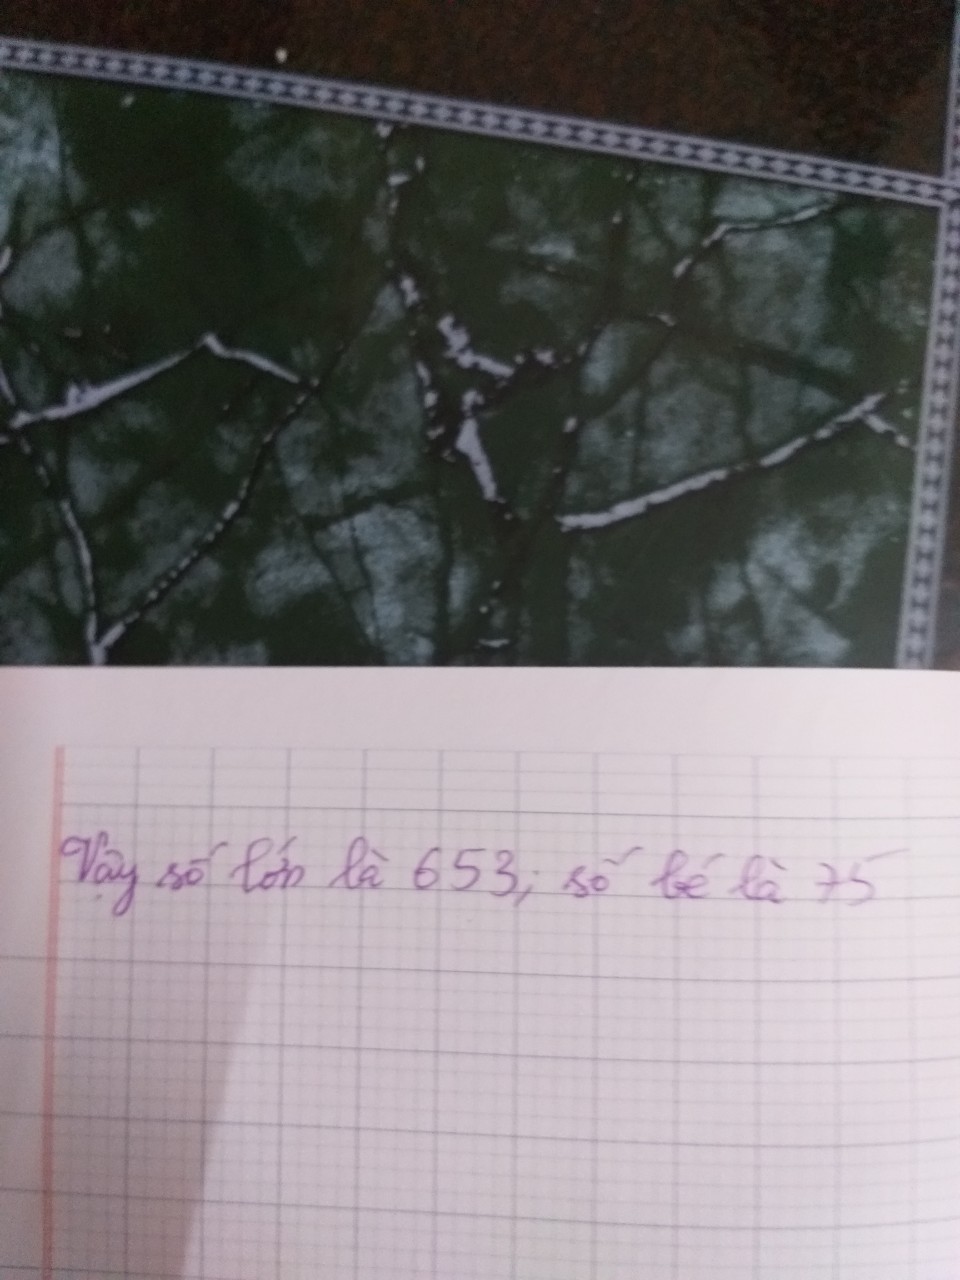 Vậy số lớn là 653; số bé là 75